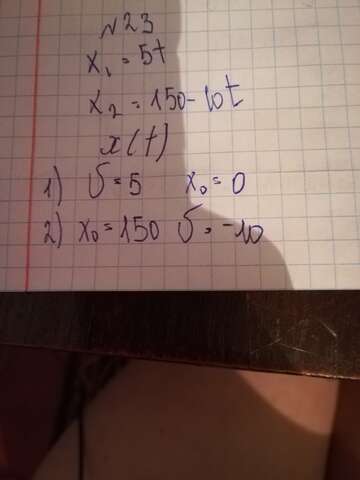 №23
x₁ = 5t
x₂ = 150 - 10t
x(t)
1) υ = 5 x₀ = 0
2) x₀ = 150 υ = -10